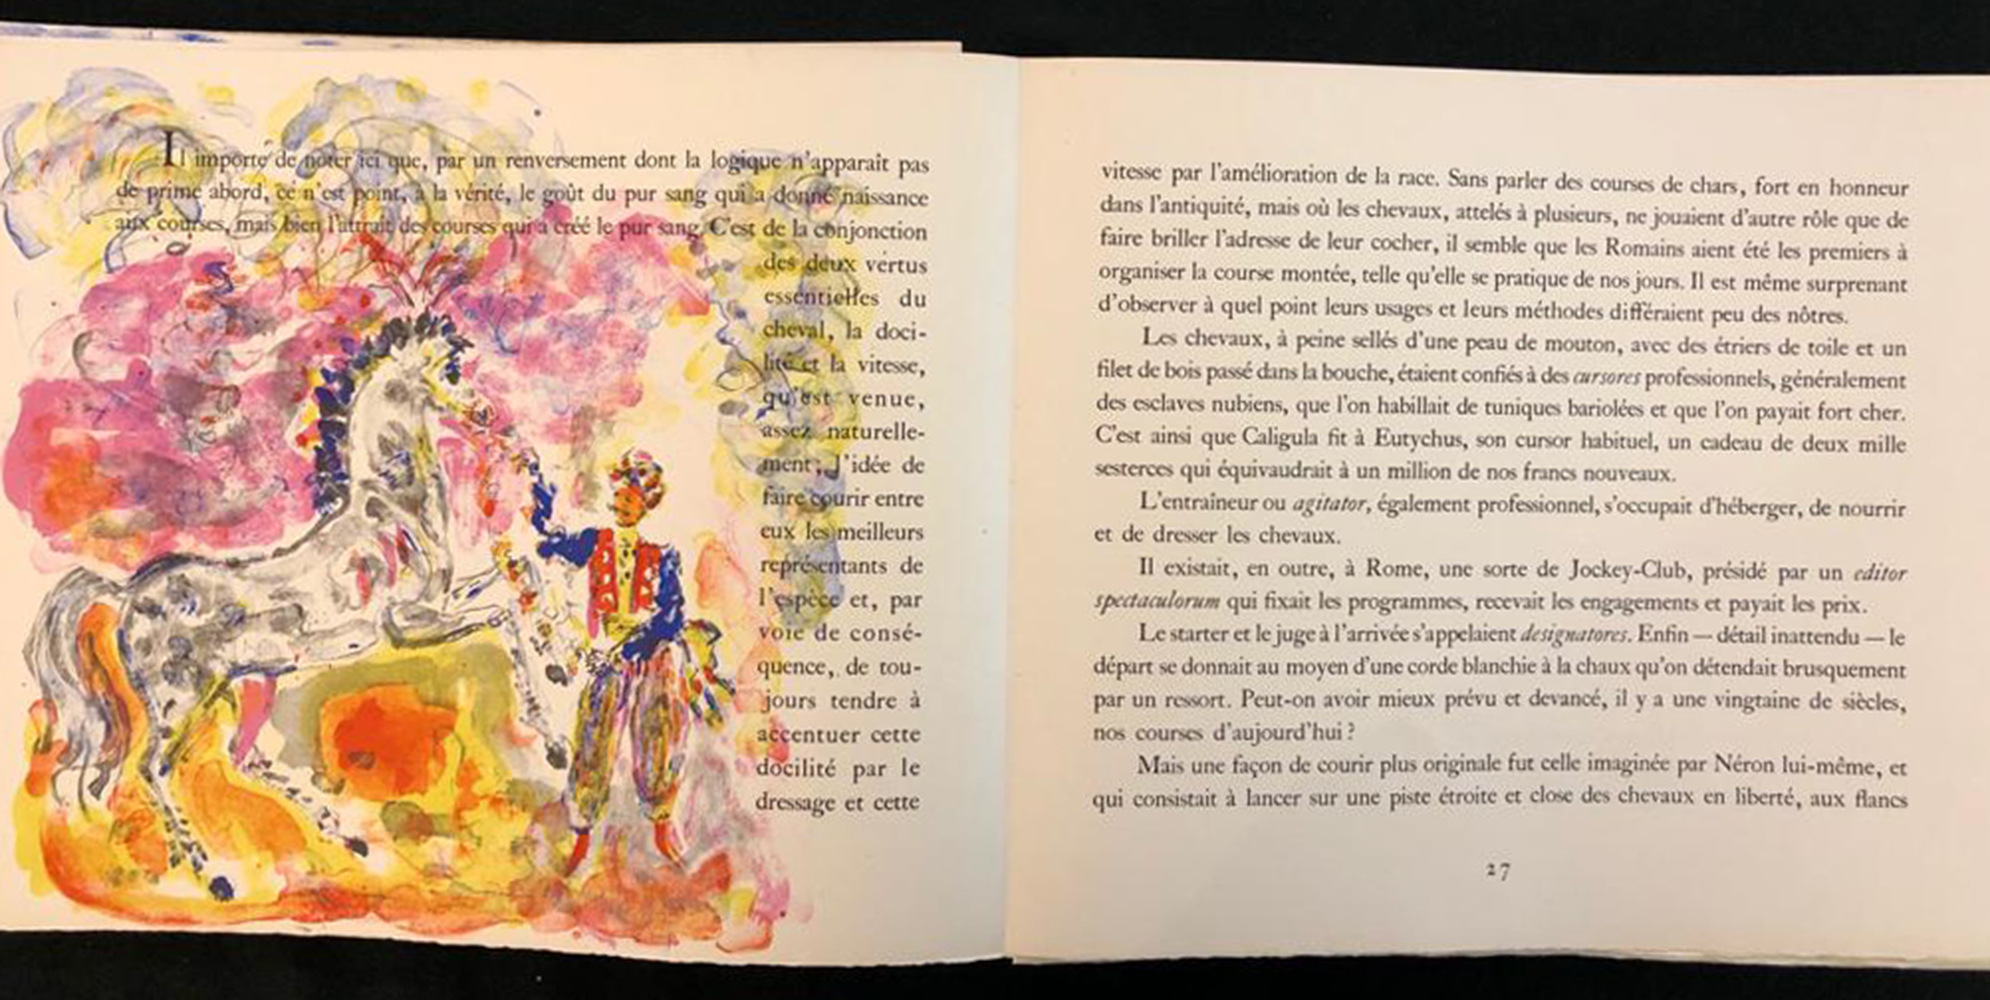 Il importe de noter ici que, par un renversement dont la logique n'apparaît pas
de prime abord, ce n'est point, à la vérité, le goût du pur sang qui a donné naissance
aux courses, mais bien l'attrait des courses qui a créé le pur sang. C'est de la conjonction
des deux vertus
essentielles du
cheval, la doci-
lité et la vitesse,
qu'est venue,
assez naturelle-
ment, l'idée de
faire courir entre
eux les meilleurs
représentants de
l'espèce et, par
voie de consé-
quence, de tou-
jours tendre à
accentuer cette
docilité par le
dressage et cette
vitesse par l'amélioration de la race. Sans parler des courses de chars, fort en honneur
dans l'antiquité, mais où les chevaux, attelés à plusieurs, ne jouaient d'autre rôle que de
faire briller l'adresse de leur cocher, il semble que les Romains aient été les premiers à
organiser la course montée, telle qu'elle se pratique de nos jours. Il est même surprenant
d'observer à quel point leurs usages et leurs méthodes différaient peu des nôtres.
Les chevaux, à peine sellés d'une peau de mouton, avec des étriers de toile et un
filet de bois passé dans la bouche, étaient confiés à des cursores professionnels, généralement
des esclaves nubiens, que l'on habillait de tuniques bariolées et que l'on payait fort cher.
C'est ainsi que Caligula fit à Eutychus, son cursor habituel, un cadeau de deux mille
sesterces qui équivaudrait à un million de nos francs nouveaux.
L'entraîneur ou agitator, également professionnel, s'occupait d'héberger, de nourrir
et de dresser les chevaux.
Il existait, en outre, à Rome, une sorte de Jockey-Club, présidé par un editor
spectaculorum qui fixait les programmes, recevait les engagements et payait les prix.
Le starter et le juge à l'arrivée s'appelaient designatores. Enfin — détail inattendu — le
départ se donnait au moyen d'une corde blanchie à la chaux qu'on détendait brusquement
par un ressort. Peut-on avoir mieux prévu et devancé, il y a une vingtaine de siècles,
nos courses d'aujourd'hui ?
Mais une façon de courir plus originale fut celle imaginée par Néron lui-même, et
qui consistait à lancer sur une piste étroite et close des chevaux en liberté, aux flancs
27